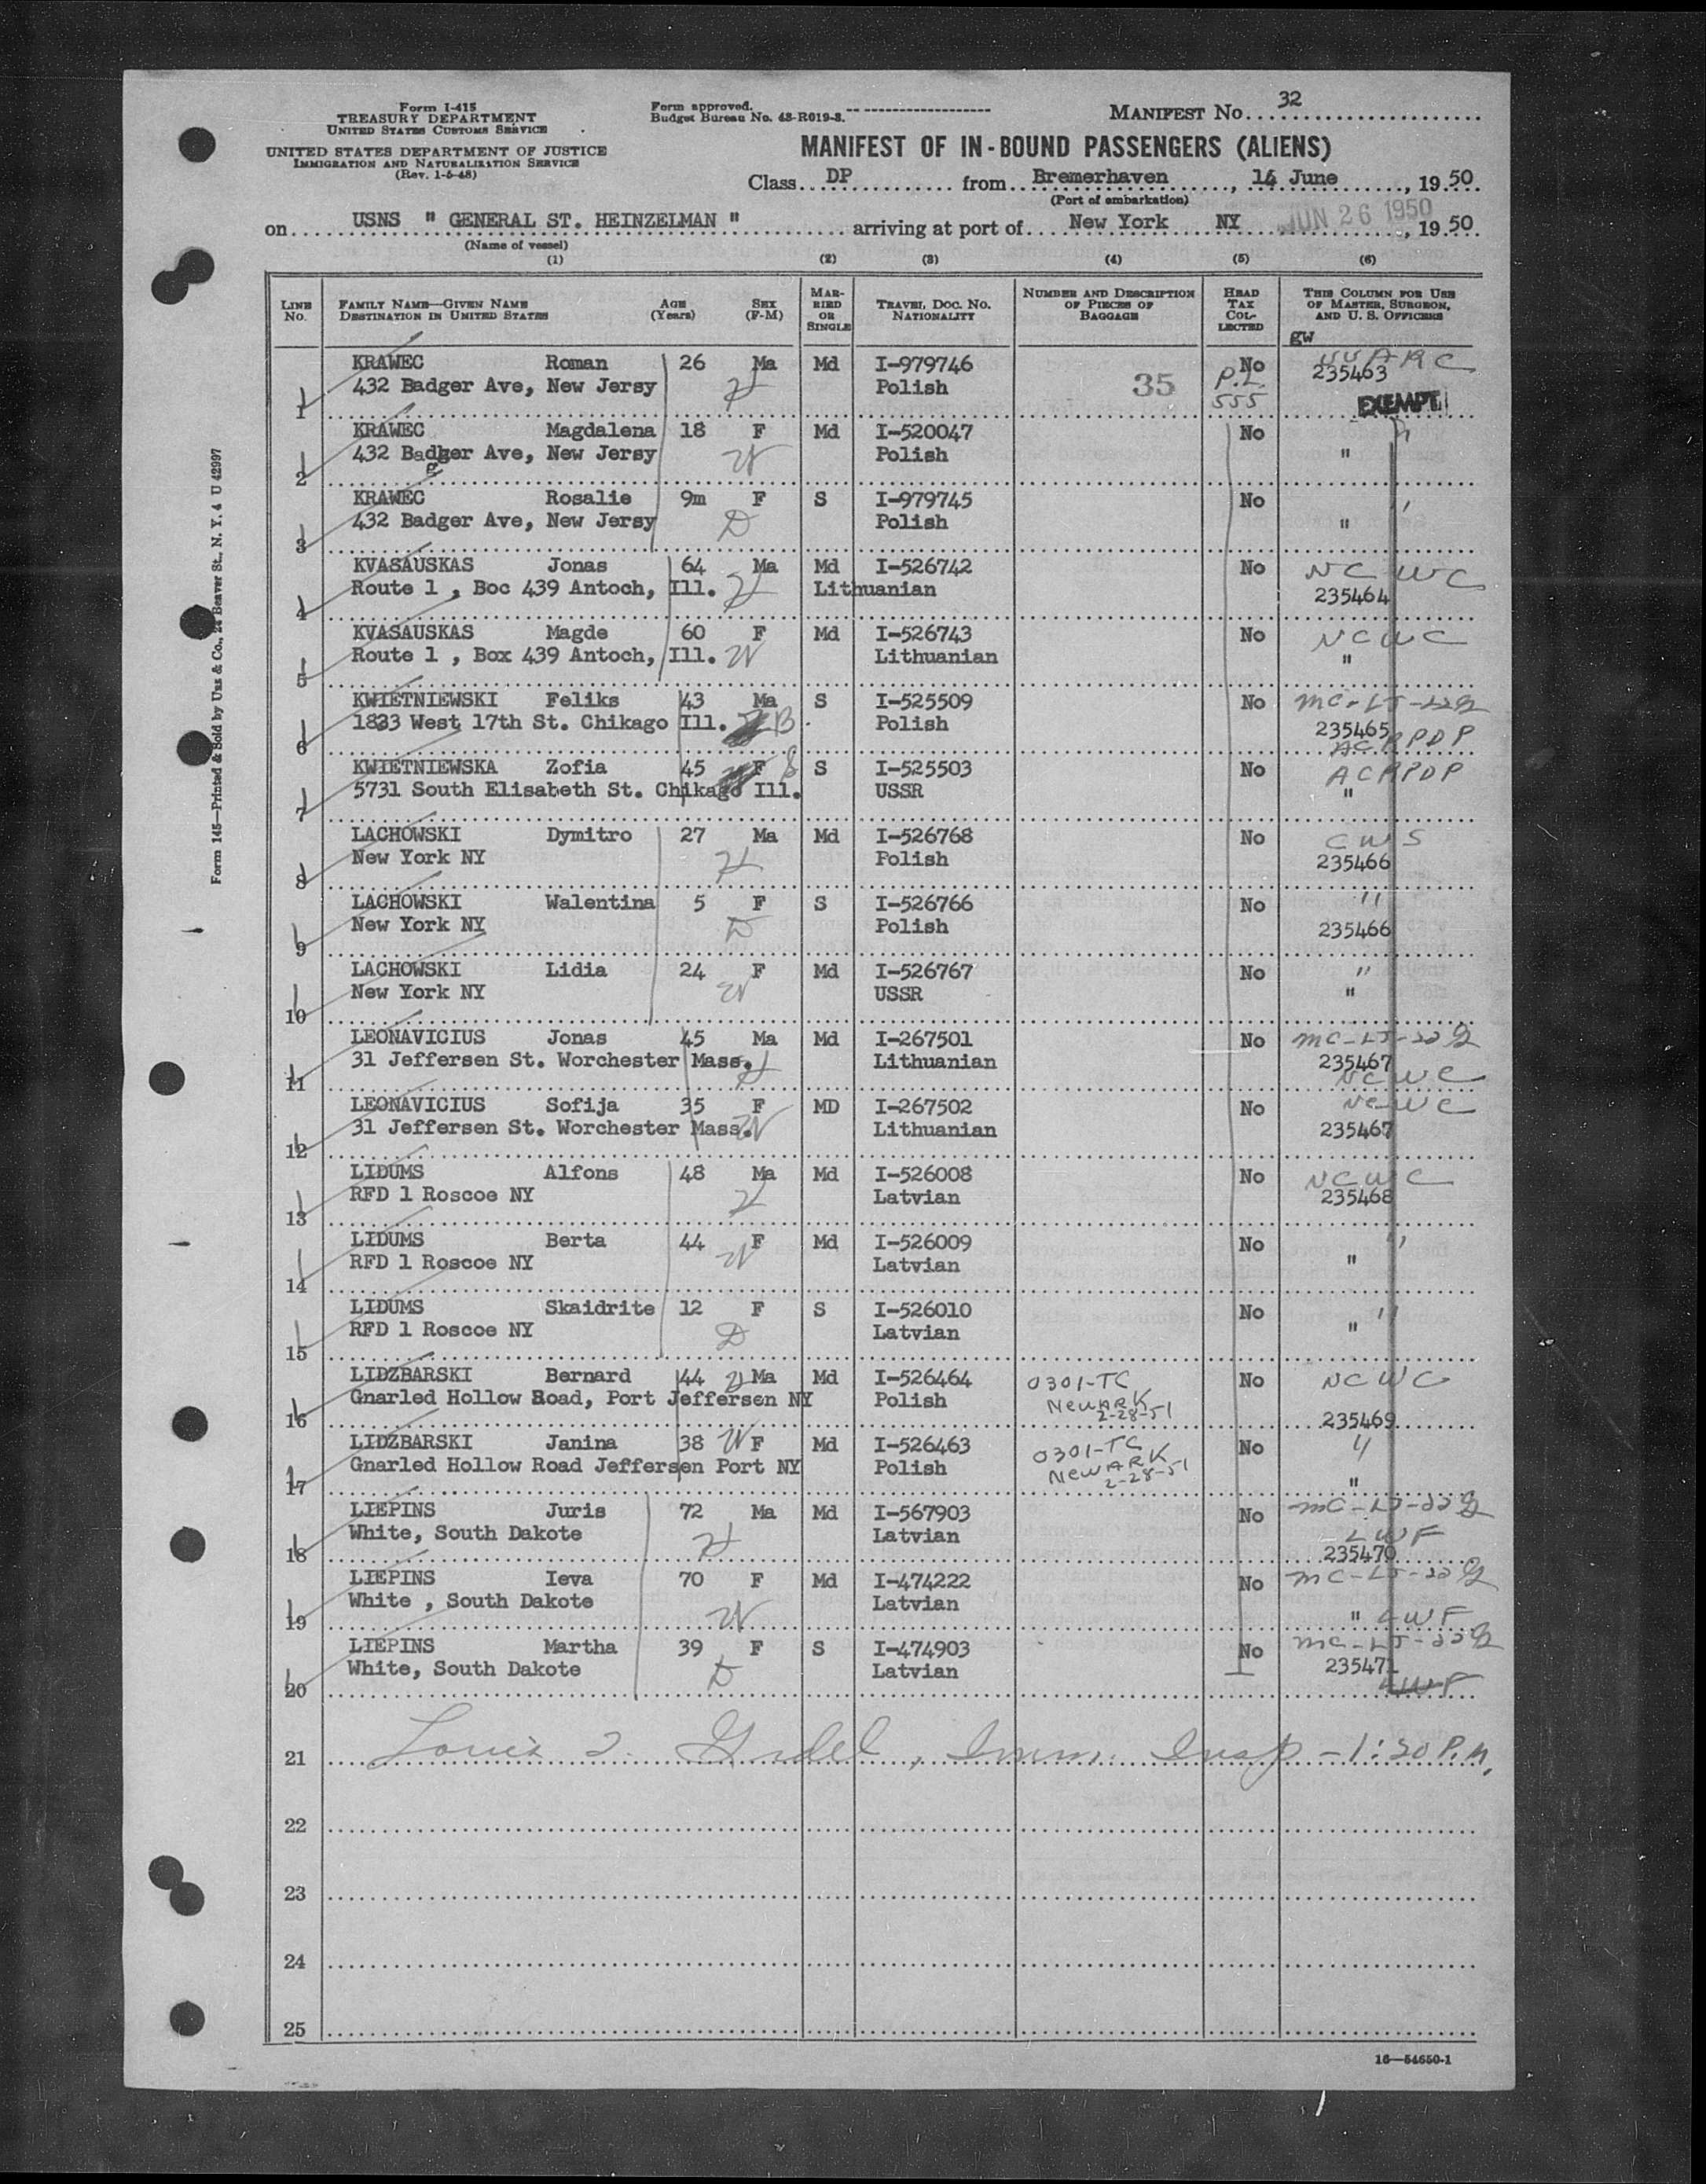 Form I-415
TREASURY DEPARTMENT
UNITED STATES CUSTOMS SERVICE
UNITED STATES DEPARTMENT OF JUSTICE
IMMIGRATION AND NATURALIZATION SERVICE
(Rev. 1-6-48)
Form approved.
Budget Bureau No. 43-R019-3.
MANIFEST No. 32
MANIFEST OF IN-BOUND PASSENGERS (ALIENS)
Class DP from Bremerhaven, 14 June, 1950
(Port of embarkation)
on USNS " GENERAL ST. HEINZELMAN " arriving at port of New York NY JUN 26 1950, 1950
(Name of vessel)
(1) (2) (3) (4) (5) (6)
LINE No. FAMILY NAME—GIVEN NAME DESTINATION IN UNITED STATES AGE (Years) SEX (F-M) MARRIED OR SINGLE TRAVEL DOC. No. NATIONALITY NUMBER AND DESCRIPTION OF PIECES OF BAGGAGE HEAD TAX COLLECTED THIS COLUMN FOR USE OF MASTER, SURGEON, AND U. S. OFFICERS
gw
1 KRAWEC Roman 26 Ma Md I-979746 No
432 Badger Ave, New Jersy H Polish 35 P.L. 555 235463 EXEMPT
2 KRAWEC Magdalena 18 F Md I-520047 No "
432 Badger Ave, New Jersy W Polish "
3 KRAWEC Rosalie 9m F S I-979745 No "
432 Badger Ave, New Jersy D Polish "
4 KVASAUSKAS Jonas 64 Ma Md I-526742 No NCWC
Route 1 , Boc 439 Antoch, Ill. H Lithuanian 235464
5 KVASAUSKAS Magde 60 F Md I-526743 No NCWC
Route 1 , Box 439 Antoch, Ill. W Lithuanian "
6 KWIETNIEWSKI Feliks 43 Ma S I-525509 No
1833 West 17th St. Chikago Ill. B Polish 235465
ACRPDP
7 KWIETNIEWSKA Zofia 45 F S S I-525503 No ACRPDP
5731 South Elisabeth St. Chikago Ill. USSR "
8 LACHOWSKI Dymitro 27 Ma Md I-526768 No CWS
New York NY H Polish 235466
9 LACHOWSKI Walentina 5 F S I-526766 No "
New York NY D Polish 235466
10 LACHOWSKI Lidia 24 F Md I-526767 No "
New York NY W USSR "
11 LEONAVICIUS Jonas 45 Ma Md I-267501 No
31 Jeffersen St. Worchester Mass. H Lithuanian 235467
NCWC
12 LEONAVICIUS Sofija 35 F MD I-267502 No NCWC
31 Jeffersen St. Worchester Mass. W Lithuanian 235467
13 LIDUMS Alfons 48 Ma Md I-526008 No NCWC
RFD 1 Roscoe NY H Latvian 235468
14 LIDUMS Berta 44 F Md I-526009 No "
RFD 1 Roscoe NY W Latvian "
15 LIDUMS Skaidrite 12 F S I-526010 No "
RFD 1 Roscoe NY D Latvian "
16 LIDZBARSKI Bernard 44 H Ma Md I-526464 0301-TC No NCWC
Gnarled Hollow Road, Port Jeffersen NY Polish NEWARK 2-28-51 235469
17 LIDZBARSKI Janina 38 W F Md I-526463 0301-TC No "
Gnarled Hollow Road Jeffersen Port NY Polish NEWARK 2-28-51 "
18 LIEPINS Juris 72 Ma Md I-567903 No
White, South Dakote H Latvian LWF
235470
19 LIEPINS Ieva 70 F Md I-474222 No
White , South Dakote W Latvian " LWF
20 LIEPINS Martha 39 F S I-474903 No
White, South Dakote D Latvian 235471
LWF
21 Louis Imm. Insp - 1:30 P.M.
22
23
24
25
16—54650-1
Form 145—Printed & Sold by Unz & Co., 24 Beaver St., N. Y. 4 U 42997